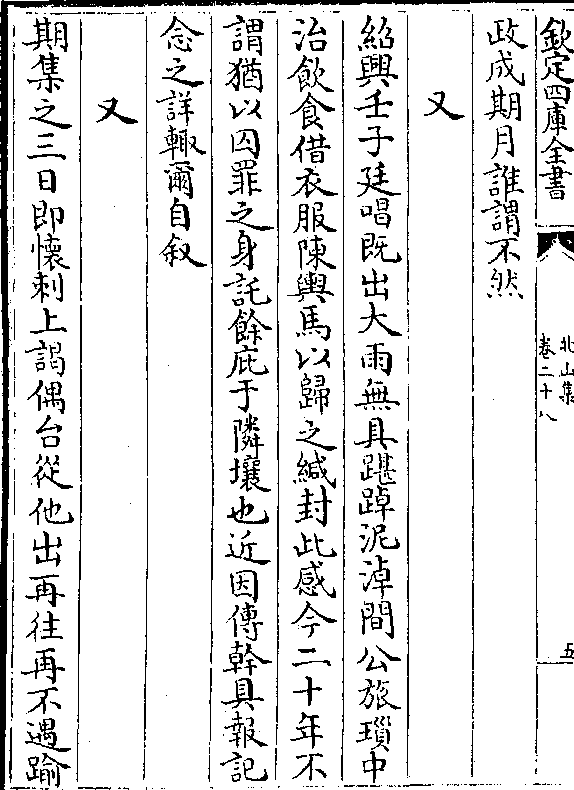 欽定四庫全書
北山集
卷二十八
五
政成期月誰謂不然
又
紹興壬子廷唱既出大雨無具踸踔泥淖間公旅瑣中
治飲食借衣服陳輿馬以歸之緘封此感今二十年不
謂猶以囚罪之身託餘庇于隣壤也近因傳幹具報記
念之詳輙爾自叙
又
期集之三日即懷刺上謁偶台從他出再往再不遇踰